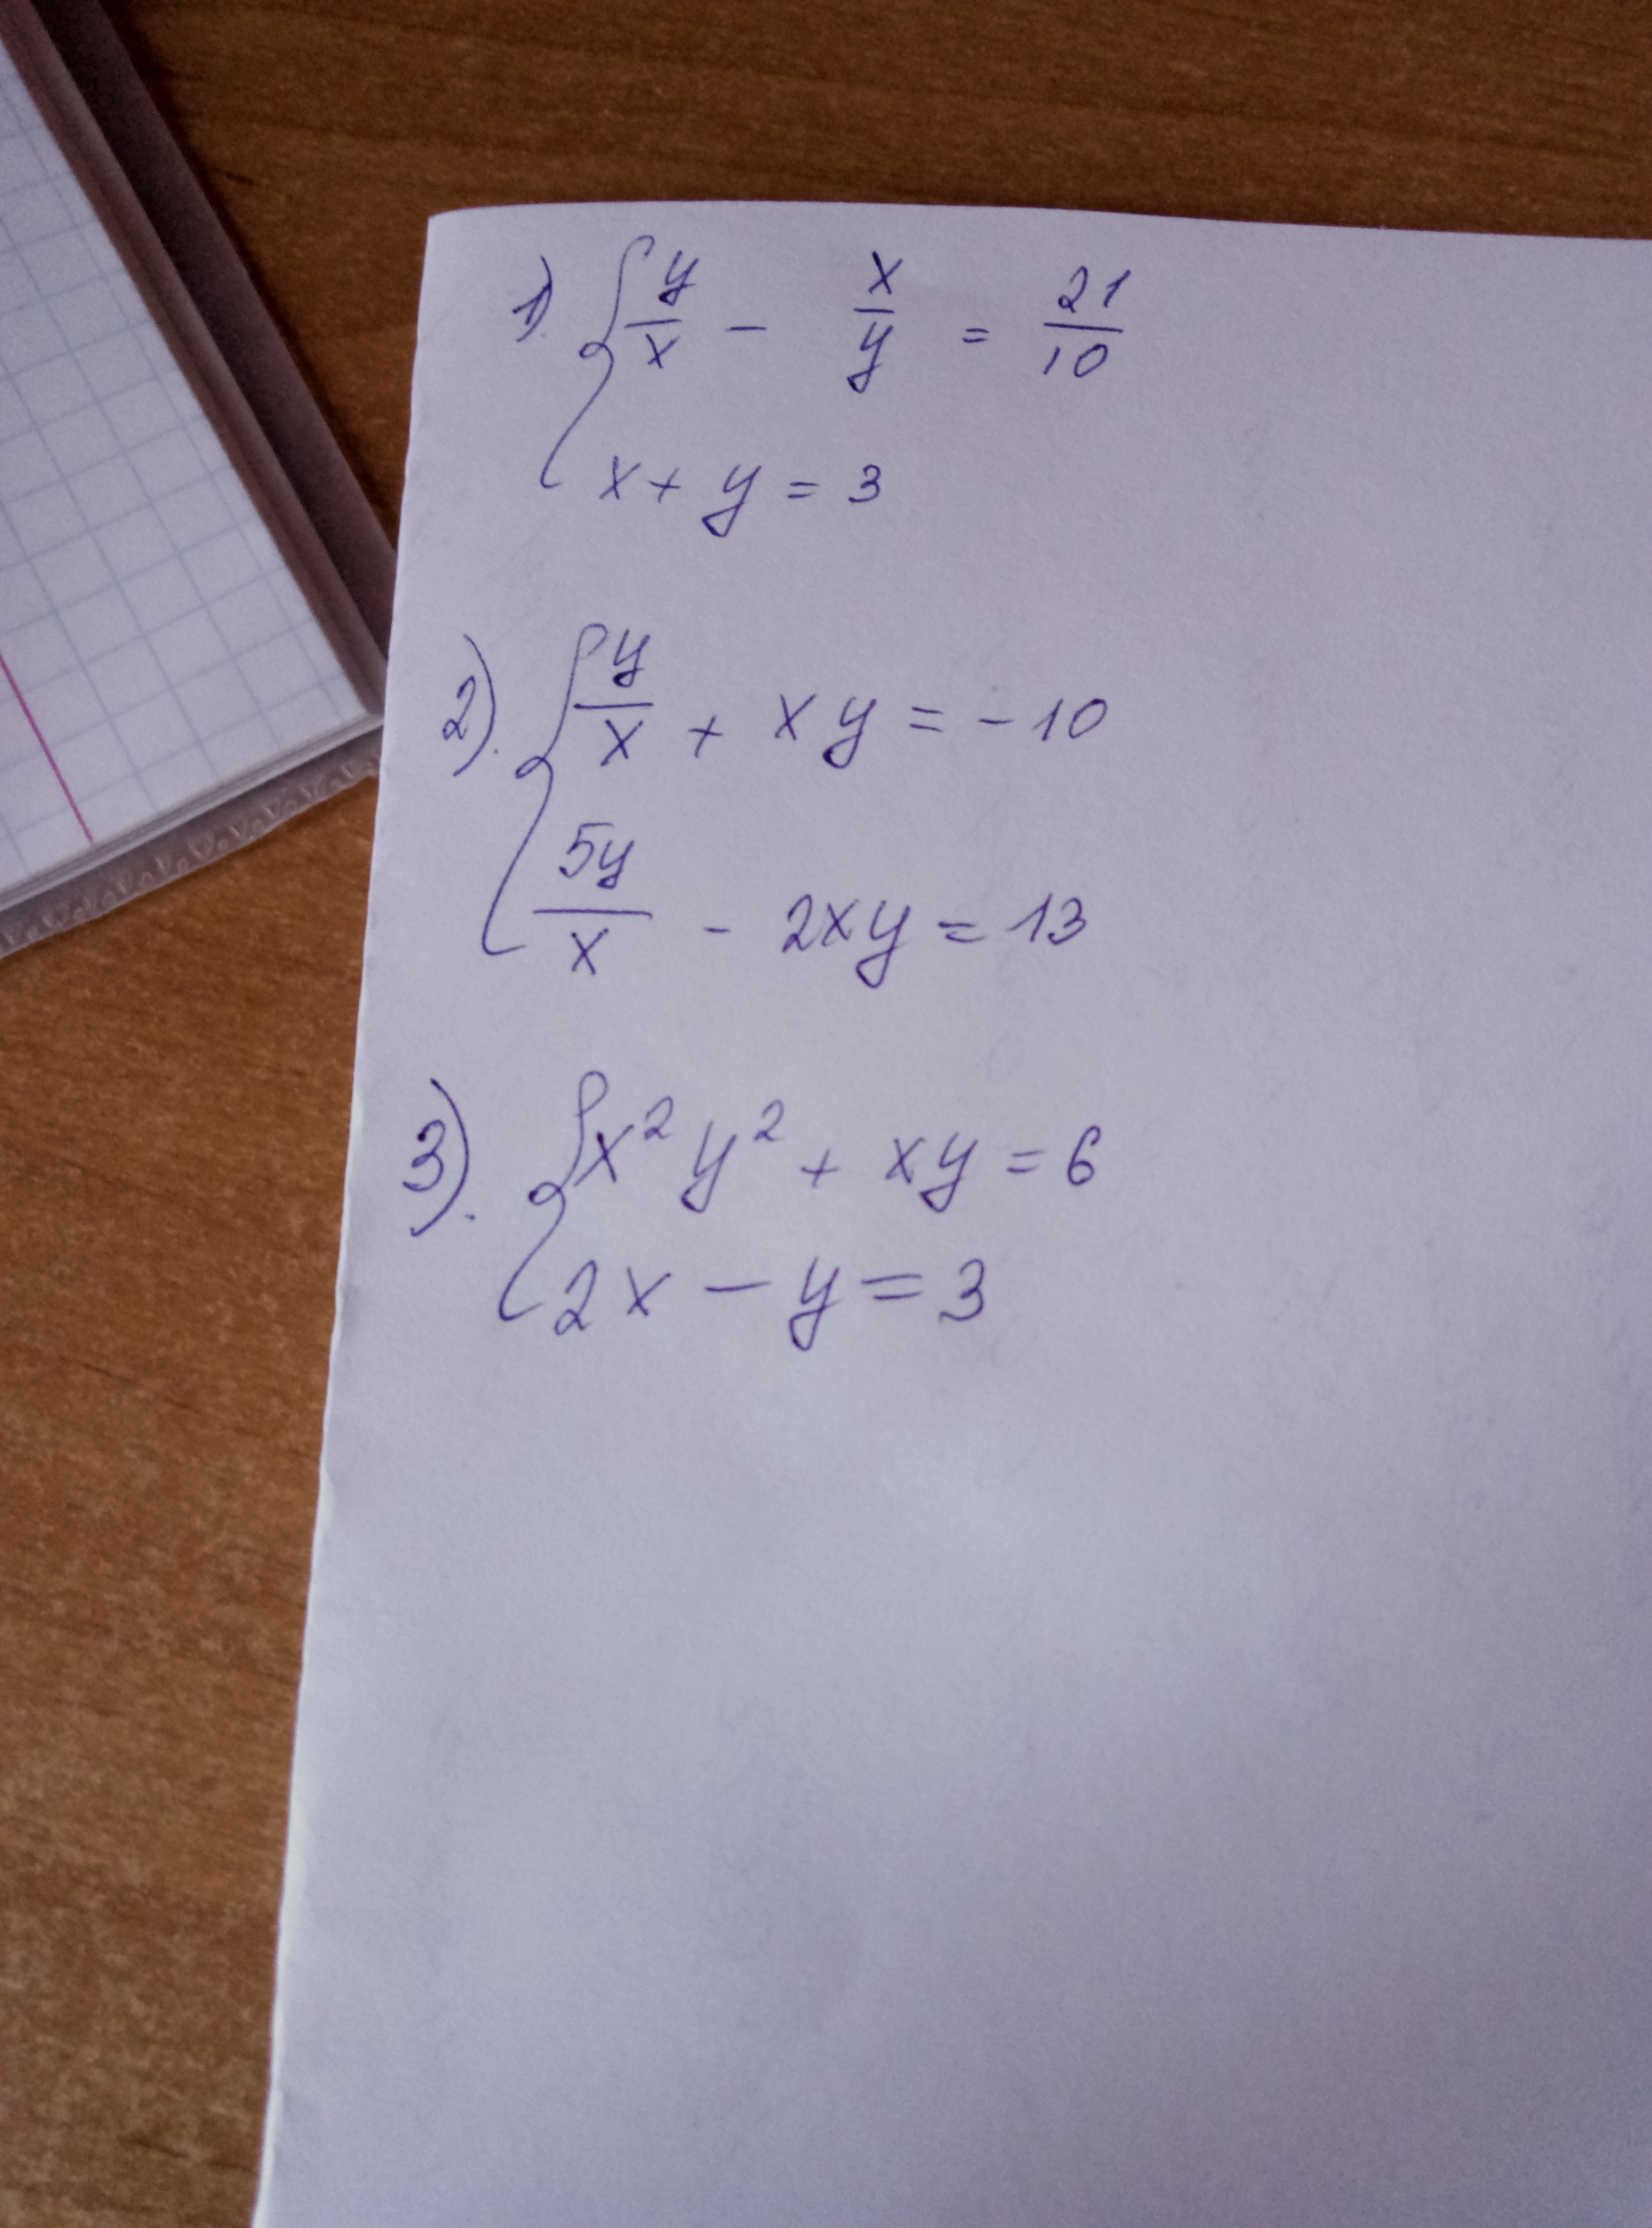 1). { y/x - x/y = 21/10
x + y = 3
2). { y/x + xy = -10
5y/x - 2xy = 13
3). { x² y² + xy = 6
2x - y = 3